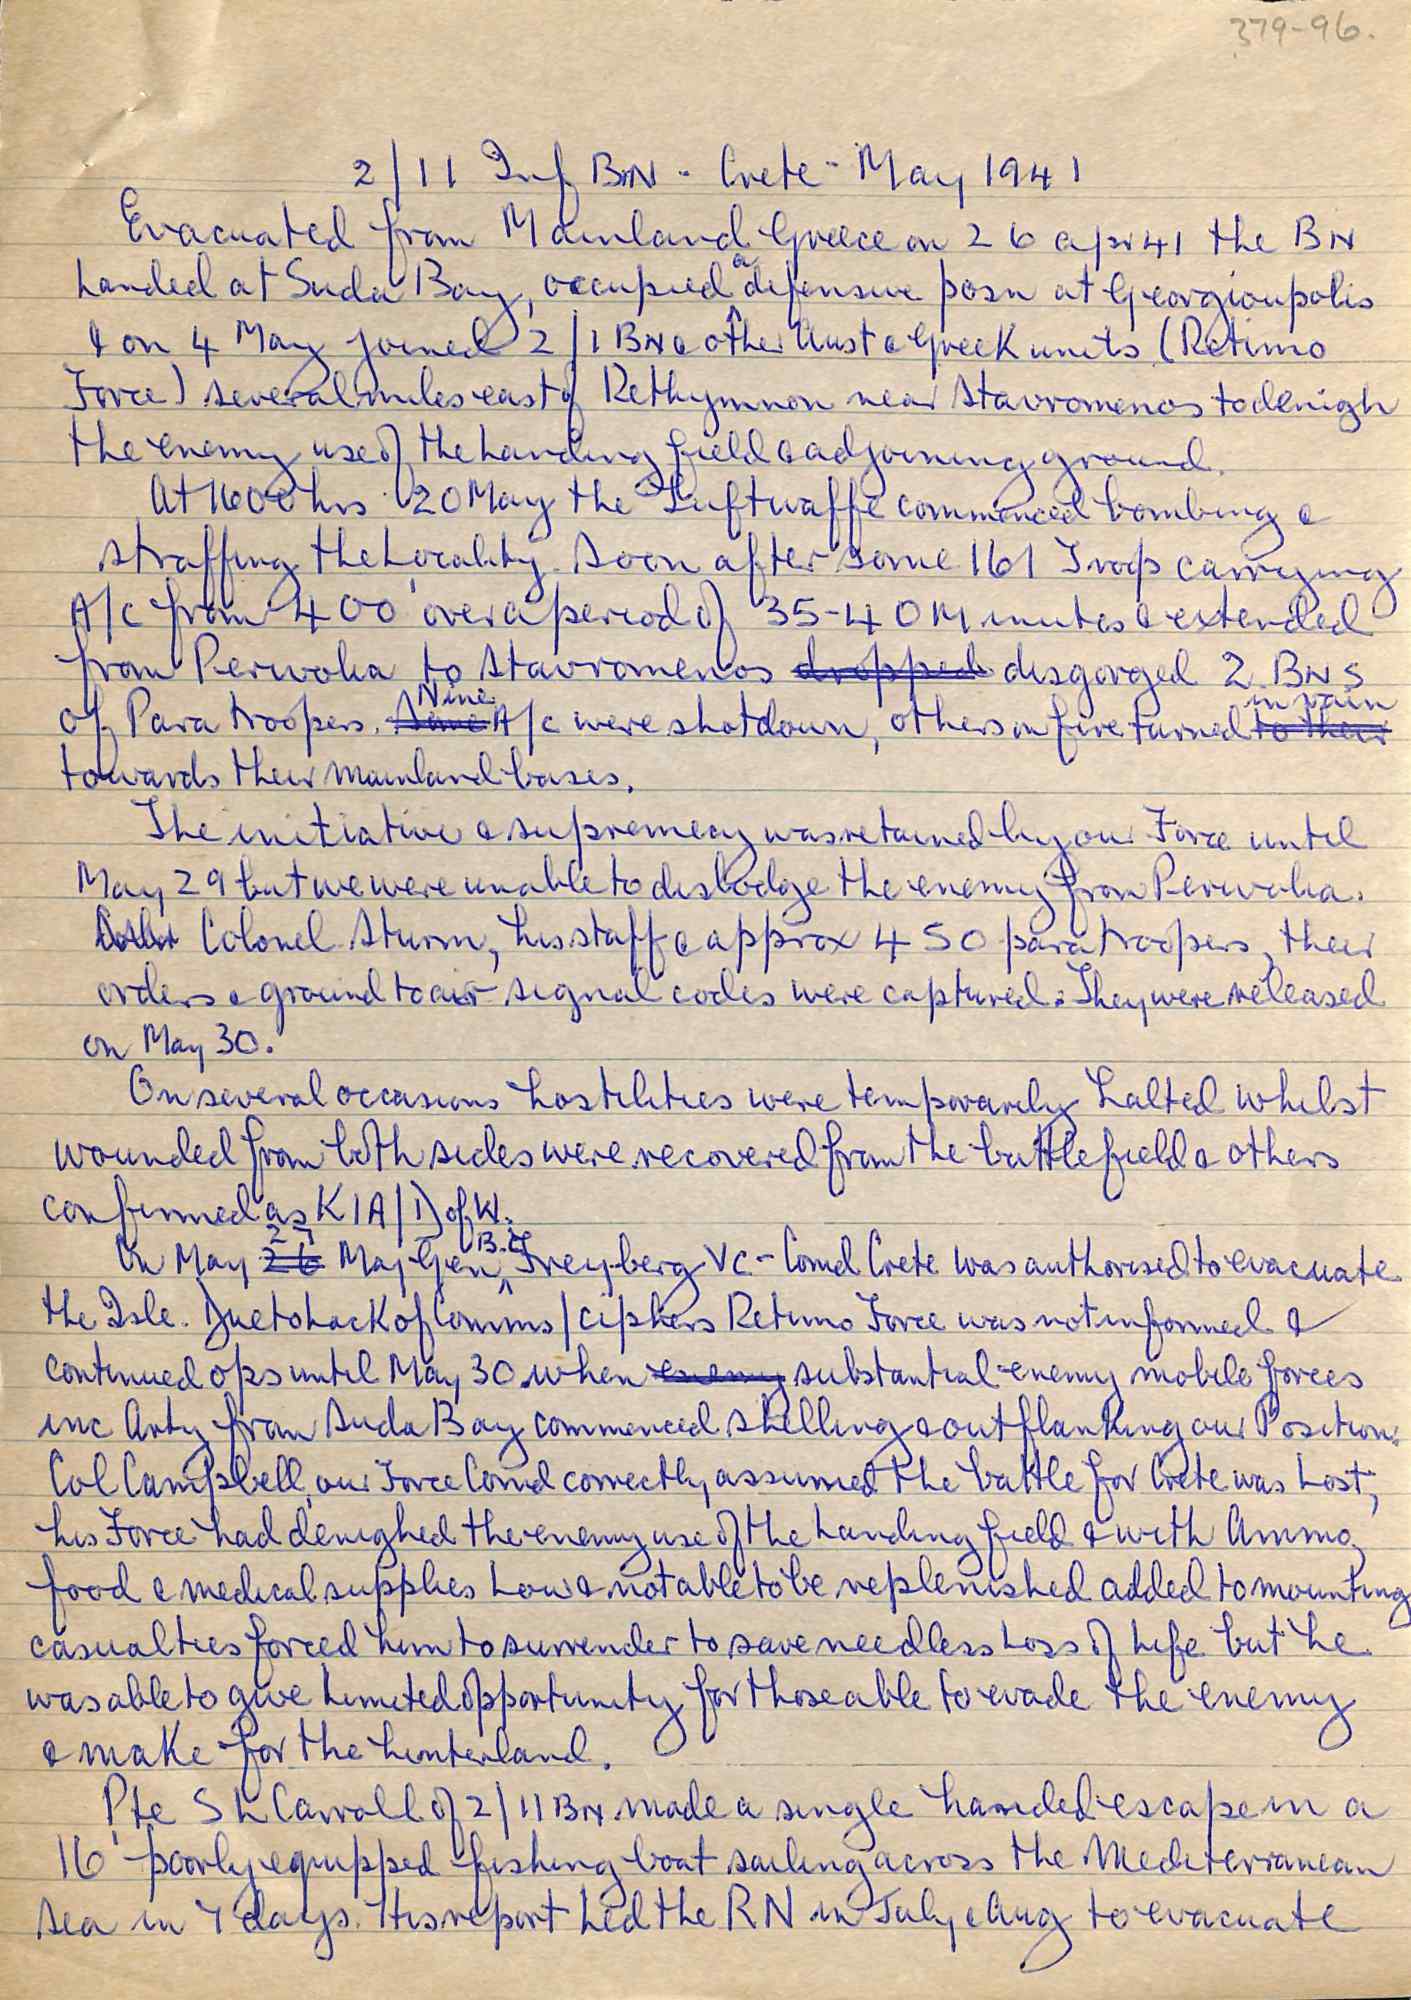 379-96.
2/11 Inf BN - Crete - May 1941
Evacuated from Mainland Greece on 26 apr 41 the BN
Landed at Suda Bay, occupied a defensive posn at Georgioupolis
& on 4 May joined 2/1 BN & other Aust & Greek units (Retimo
Force) several miles east of Rethymnon near Stavromenos to denigh
the enemy use of the Landing field & adjoining ground.
At 1600 hrs 20 May the Luftwaffe commenced bombing &
straffing the Locality. Soon after some 161 Troop carrying
A/c from 400' over a period of 35-40 Minutes & extended
from Perivolia to Stavromenos dropped disgorged 2 BNS
of Para troopers. Some Nine A/c were shot down, others on fire turned to their in vain
towards their mainland bases.
The initiative & supremecy was retained by our Force until
May 29 but we were unable to dislodge the enemy from Perivolia.
Colonel Sturm, his staff & approx 450 para troopers, their
orders & ground to air signal codes were captured. They were released
on May 30.
On several occasions hostilities were temporarily halted whilst
wounded from both sides were recovered from the battlefield & others
confirmed as KIA/D of W.
On May 26 27 Maj Gen B.C. Freyberg VC - Comd Crete was authorised to evacuate
the Isle. Due to Lack of Comms/ciphers Retimo Force was not informed &
continued ops until May 30. when enemy substantial enemy mobile forces
inc Arty from Suda Bay commenced shelling & outflanking our Position.
Col Campbell, our Force Comd correctly assumed the battle for Crete was Lost,
his Force had denighed the enemy use of the Landing field & with Ammo,
food & medical supplies Low & not able to be replenished added to mounting
casualties forced him to surrender to save needless Loss of Life but he
was able to give Limited opportunity for those able to evade the enemy
& make for the hinterland.
Pte S L Carroll of 2/11 BN made a single handed escape in a
16' poorly equipped fishing boat sailing across the Mediterranean
Sea in 7 days. His report Led the RN in July & Aug to evacuate